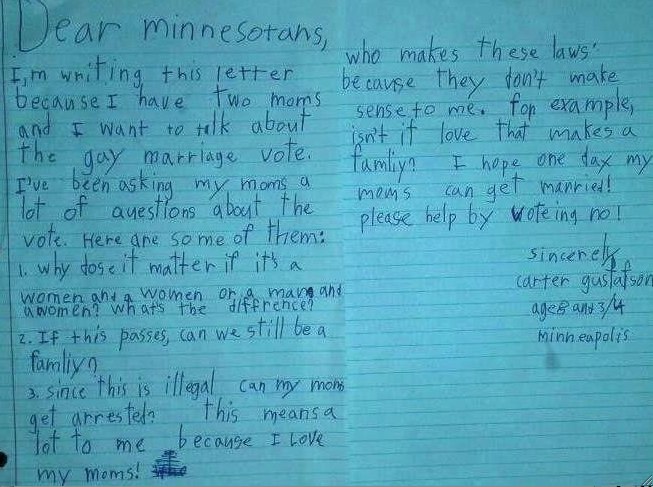 Dear minnesotans,
I,m writing this letter
because I have two moms
and I want to talk about
the gay marriage vote.
I've been asking my moms a
lot of questions about the
vote. Here are some of them:
1. why dose it matter if it's a
women and a women or a man and
a women? what's the diffrence?
2. If this passes, can we still be a
famliy?
3. since this is illegal can my moms
get arrested? this means a
lot to me because I Love
my moms!
who makes these laws?
because they don't make
sense to me. for example,
isn't it love that makes a
famliy? I hope one day my
moms can get married!
please help by voteing no!
sincerely,
carter gustafson
age 8 and 3/4
minneapolis